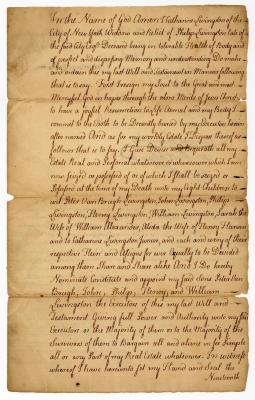 In the Name of God Amen I Catharine Livingston of the
City of New York Widdow and Relict of Philip Livingston late of
the said City Esqr Deceased being in tolerable Health of Body and
of perfect and disposing Memory and understanding Do make
and ordain this my last Will and Testament in Manner following
that is to say. First I resign my Soul to the great and most
Mercyful God in hopes through the alone Merits of Jesus Christ
to have a joyful Resurrection to Life Eternal and my Body I
commit to the Earth to be Decently buried by my Executors herein
after named And as for my worldly Estate I Dispose thereof as
follows that is to say, I Give Devise and Bequeath all my
Estate Real and Personal whatsoever & wheresoever which I am
now seized or possessed of or of which I shall be seized or
Possessed at the time of my Death unto my Eight Children to
wit Peter Van Brugh Livingston, John Livingston, Philip
Livingston, Henry Livingston, William Livingston, Sarah the
Wife of William Alexander, Alida the Wife of Henry Hansen
and to Catharine Livingston Junior, and each and every of their
respective Heirs and Assigns for ever Equally to be Divided
among them Share and Share alike And I Do hereby
Nominate Constitute and appoint my said Sons Peter Van
Brugh, John, Philip, Henry, and William
Livingston the Executors of this my last Will and
Testament Giving full Power and Authority unto my said
Executors or the Majority of them or to the Majority of the
Survivors of them to Bargain sell and alien in fee Simple
all or any Part of my Real Estate whatsoever. In witness
whereof I have hereunto set my Hand and Seal the
Nineteenth